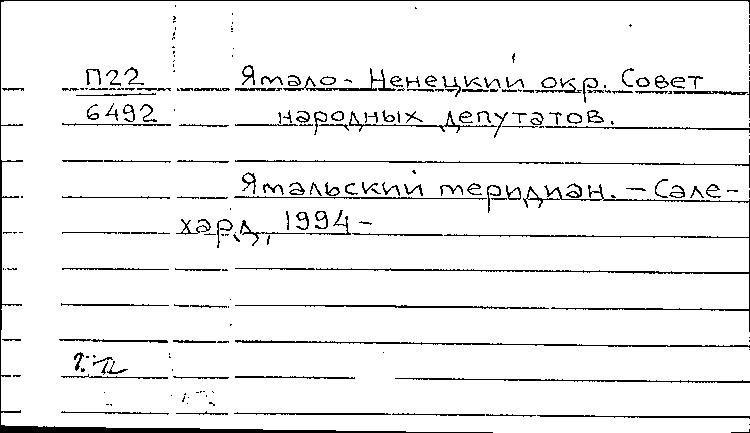 П22
6492
Ямало-Ненецкий окр. Совет
народных депутатов.
Ямальский меридиан. — Сале-
хард, 1994 —